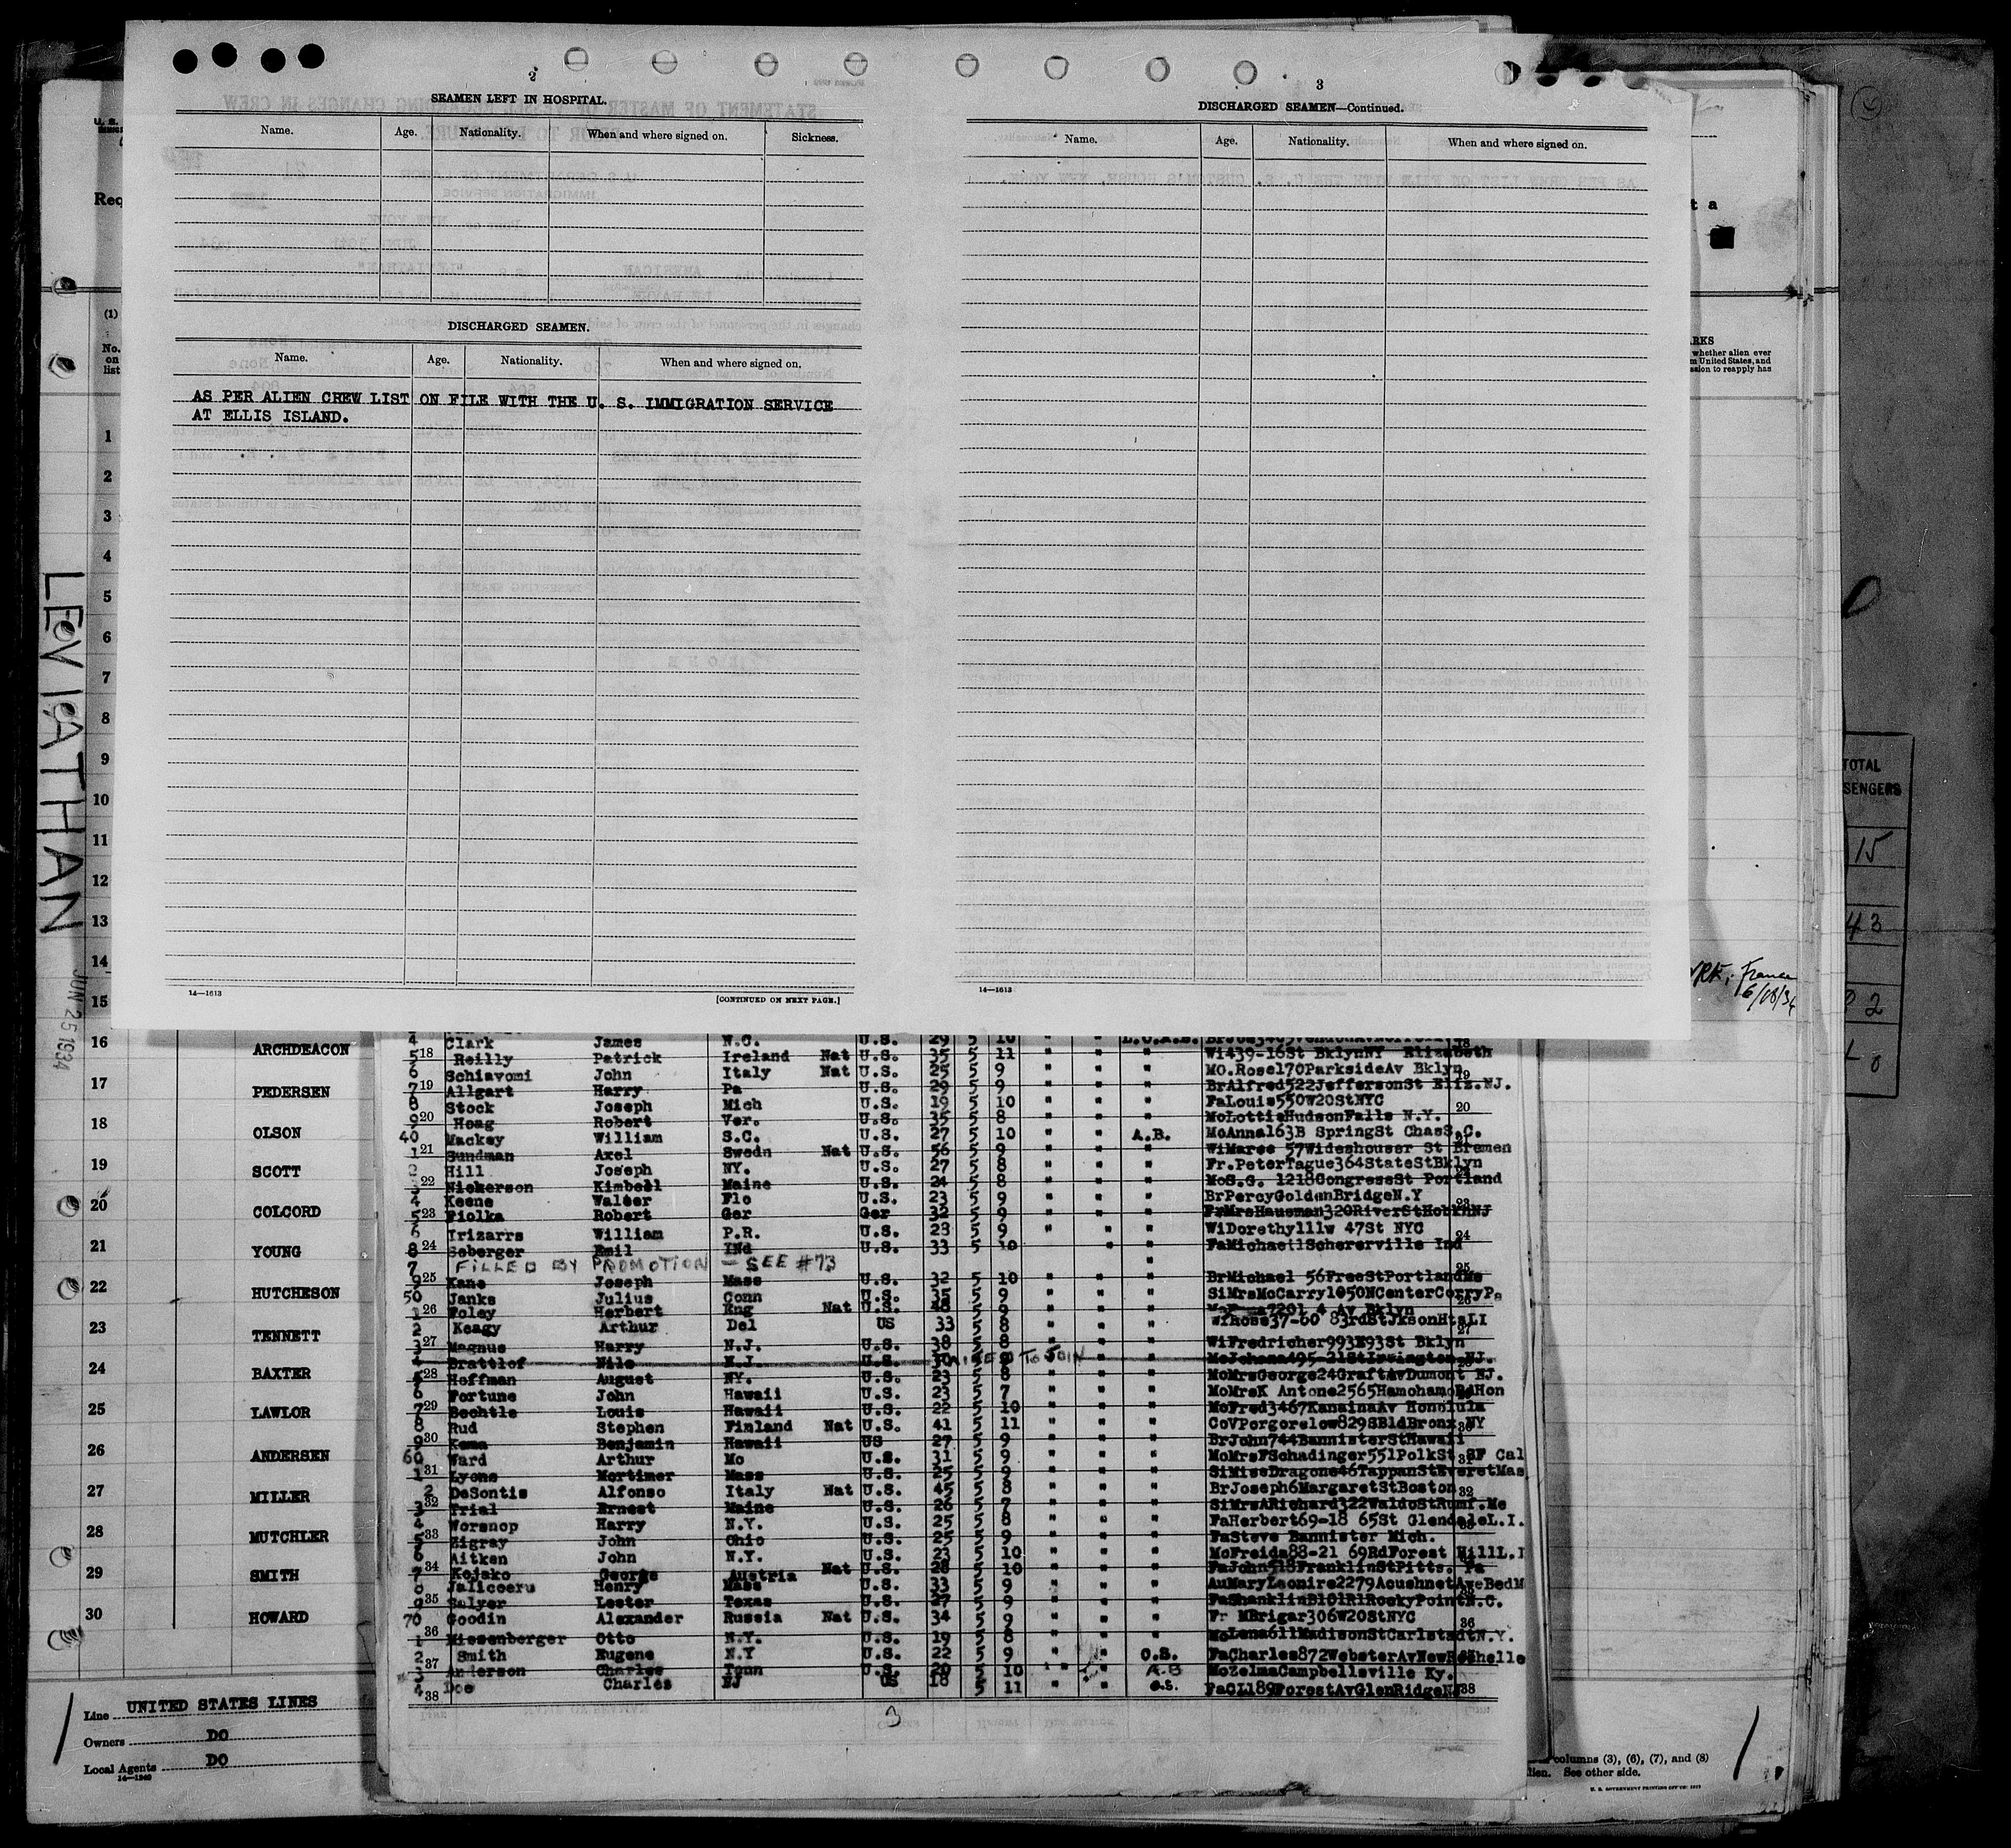 2
SEAMEN LEFT IN HOSPITAL.
Name. Age. Nationality. When and where signed on. Sickness.
DISCHARGED SEAMEN.
Name. Age. Nationality. When and where signed on.
AS PER ALIEN CREW LIST ON FILE WITH THE U. S. IMMIGRATION SERVICE
AT ELLIS ISLAND.
14—1613
[CONTINUED ON NEXT PAGE.]
3
DISCHARGED SEAMEN—Continued.
Name. Age. Nationality. When and where signed on.
14—1613
(1)
No.
on
list
LEVIATHAN
JUN 25 1934
1
2
3
4
5
6
7
8
9
10
11
12
13
14
15
16 ARCHDEACON
17 PEDERSEN
18 OLSON
19 SCOTT
20 COLCORD
21 YOUNG
22 HUTCHESON
23 TENNETT
24 BAXTER
25 LAWLOR
26 ANDERSEN
27 MILLER
28 MUTCHLER
29 SMITH
30 HOWARD
Line UNITED STATES LINES
Owners DO
Local Agents DO
4 Clark James N.C. U.S. 29 5 10 " "
5 Reilly Patrick Ireland Nat U.S. 35 5 11 " " " Wi439-16St BklynNY Elizabeth
6 Schiavomi John Italy Nat U.S. 25 5 9 " " " MO.Rose170ParksideAv Bklyn
7 Allgart Harry Pa U.S. 29 5 9 " " " BrAlfred522JeffersonSt Eliz.NJ.
8 Stock Joseph Mich U.S. 19 5 10 " " " FaLouis550W20StNYC
9 Hoag Robert Ver. U.S. 35 5 8 " " " MoLottieHudsonFalls N.Y.
40 Mackey William S.C. U.S. 27 5 10 " " A.B. MoAnna163B SpringSt ChasS.C.
1 Sundman Axel Swedn Nat U.S. 56 5 9 " " " WiMaree 57Wideshouser St Bremen
2 Hill Joseph NY. U.S. 27 5 8 " " " Fr.PeterTague364StateStBklyn
3 Nickerson Kimbell Maine U.S. 24 5 8 " " " MoS.G. 1218CongressSt Portland
4 Keene Walter Flo U.S. 23 5 9 " " " BrPercyGoldenBridgeN.Y
5 Piolka Robert Ger Ger 32 5 9 " " " FrMrsHausman320RiverStHobknNJ
6 Irizarrs William P.R. U.S. 23 5 9 " " " WiDorethy111w 47St NYC
8 Seberger Emil INd U.S. 33 5 10 " " FaMichaelSchererville Ind
7 FILLED BY PROMOTION — SEE #73 "
9 Kane Joseph Mass U.S. 32 5 10 " " " BrMichael 56FreeStPortlandMe
50 Janks Julius Conn U.S. 35 5 9 " " " SiMrsMcCarry1050NCenterCorryPa
1 Foley Herbert Eng Nat U.S. 48 5 9 " " " 7201 4 Av Bklyn
2 Keagy Arthur Del US 33 5 8 " " " WiRose37-60 83rdStJksonHtsLI
3 Magnus Harry N.J. U.S. 38 5 8 " " " WiFredricher993E93St Bklyn
4 Brattlof Nils N.J. U.S. 30 FAILED TO JOIN " " MoJohana495-21StIrvington NJ.
5 Hoffman August NY. U.S. 23 5 8 " " " MoMrsGeorge24GraftAvDumont NJ.
6 Fortune John Hawaii U.S. 23 5 7 " " " MoMrsK Antone2565HamohamoRdHon
7 Bechtle Louis Hawaii U.S. 22 5 10 " " " MoFred3467KanainaAv Honolulu
8 Rud Stephen Finland Nat U.S. 41 5 11 " " " CoVPorgorelow829SBldBronx NY
9 Kema Benjamin Hawaii US 27 5 9 " " " BrJohn744BannisterStHawaii
60 Ward Arthur Mo U.S. 31 5 9 " " " MoMrsFSchadinger551PolkSt SF Cal
1 Lyons Mortimer Mass U.S. 25 5 9 " " " SiMissDragone46TappanStEveretMas
2 DeSontis Alfonso Italy Nat U.S. 45 5 8 " " " BrJoseph6MargaretStBoston
3 Trial Ernest Maine U.S. 26 5 7 " " " SiMrsARichard322WaldoStRumf.Me
4 Worsnop Harry N.Y. U.S. 25 5 8 " " " FaHerbert69-18 65St GlendaleL.I.
5 Zigray John Ohio U.S. 25 5 9 " " " FaSteve Bannister Mich.
6 Aitken John N.Y. U.S. 23 5 10 " " " MoFreida88-21 69RdForest HillL.I
7 Kojako George Austria Nat U.S. 28 5 10 " " " FaJohn518FranklinStPitts. Pa
8 Jalicoeru Henry Mass U.S. 33 5 9 " " " AuMaryLeonire2279AcushnetAveBedM
9 Salyer Lester Texas U.S. 27 5 9 " " " FaShanklinB101R1RockyPointN.C.
70 Goodin Alexander Russia Nat U.S. 34 5 9 " " " Fr MBrigar306W20StNYC
1 Miesenberger Otto N.Y. U.S. 19 5 8 " " " MoLena611MadisonStCarlstadtN.Y.
2 Smith Eugene N.Y U.S. 22 5 9 " " O.S. FaCharles872WebsterAvNewRochelle
3 Anderson Charles Tenn U.S. 20 5 10 " " A.B MoZelmaCampbellsville Ky.
4 Doe Charles NJ US 18 5 11 " " O.S. FaCL189ForestAvGlenRidgeNJ
3
TOTAL
15
43
France
columns (3), (6), (7), and (8)
See other side.